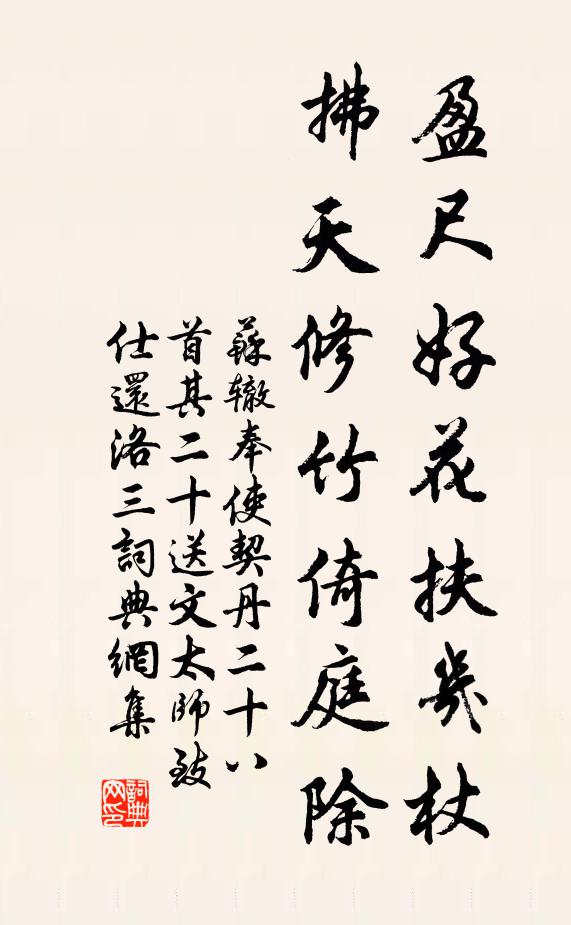 盈尺好花扶几杖
拂天修竹倚庭除
蘇辙奉使契丹二十八
首其二十送文太師致
仕還洛三詞典網集
詞典网印